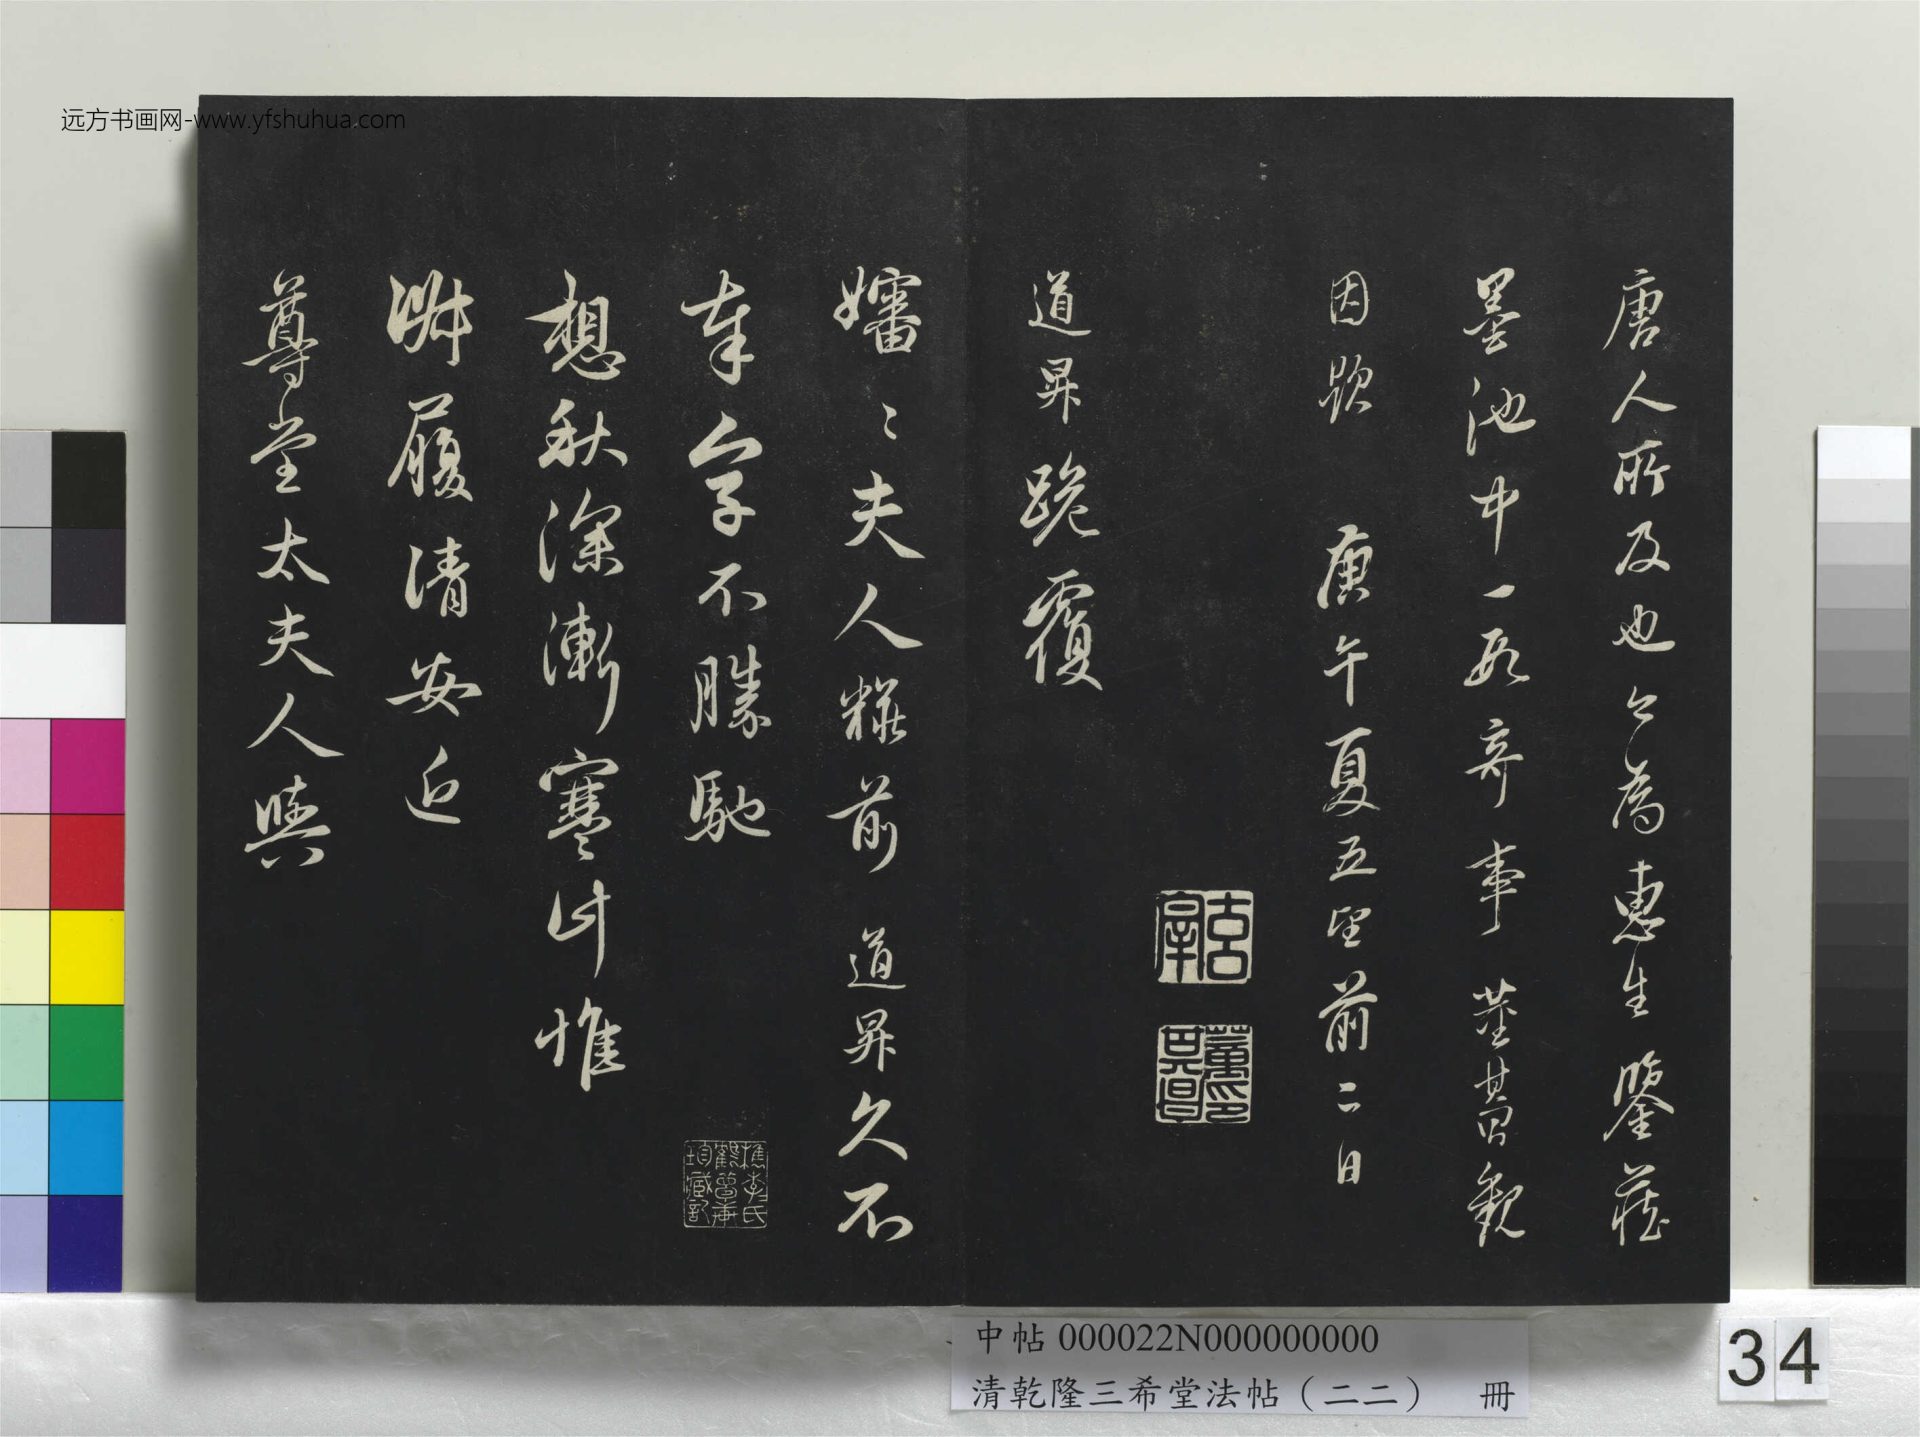 远方书画网-www.yfshuhua.com
唐人所及也今為惠生鑒藏
墨池中一段奇事 董其昌觀
因題 庚午夏五望前二日
董印其昌
道昇跪覆
嬸〻夫人糚前 道昇久不
奉字不勝馳
檇李李氏鶴夢軒珍藏記
想秋深漸寒計惟
淑履清安近
尊堂太夫人與
中帖 000022N000000000
清乾隆三希堂法帖（二二） 冊
34